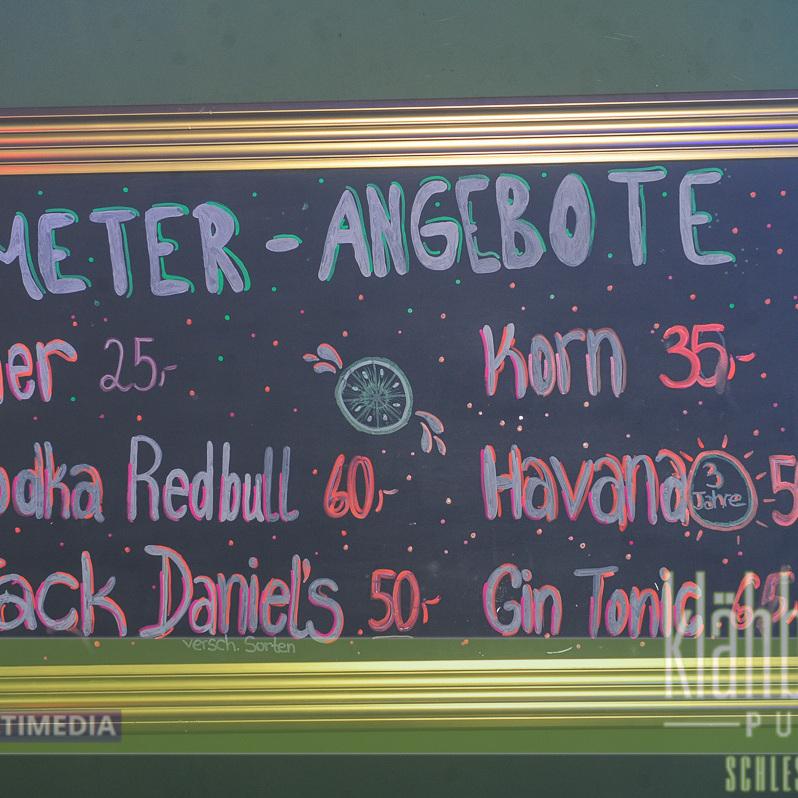 METER - ANGEBOTE
er 25,-
Korn 35,-
odka Redbull 60,-
Havana 3 Jahre 5
Jack Daniel's 50,-
versch. Sorten
Gin Tonic 65,-
TIMEDIA
klähb
PU
SCHLES